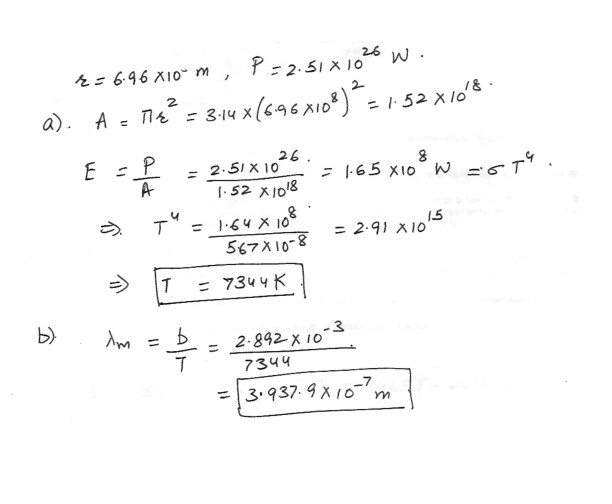 r = 6.96 × 10⁻ m , P = 2.51 × 10²⁶ W .
a). A = πr² = 3.14 × (6.96 × 10⁸)² = 1.52 × 10¹⁸.
E = P/A = 2.51 × 10²⁶. / 1.52 × 10¹⁸ = 1.65 × 10⁸ W = σT⁴ .
⇒ T⁴ = 1.64 × 10⁸ / 567 × 10⁻⁸ = 2.91 × 10¹⁵
⇒ T = 7344 K
b) λm = b/T = 2.892 × 10⁻³ / 7344
= 3.937.9 × 10⁻⁷ m